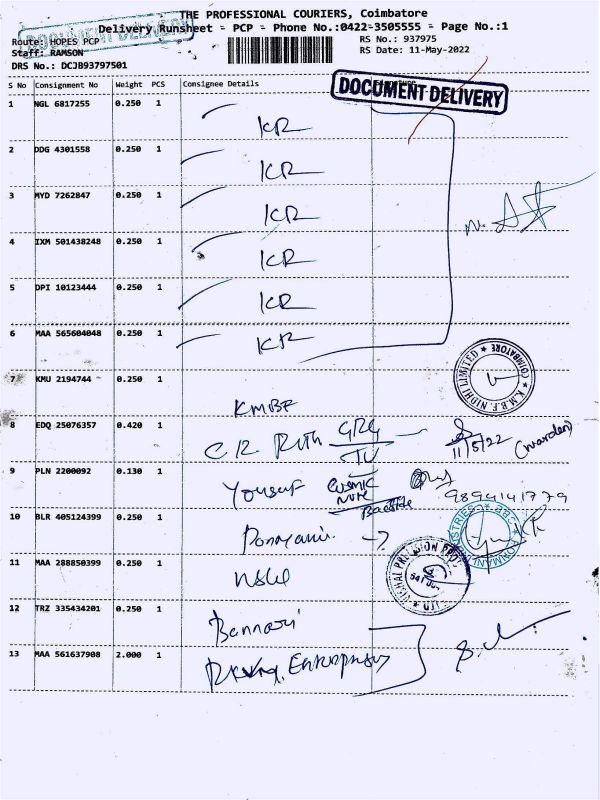 THE PROFESSIONAL COURIERS, Coimbatore
Delivery Runsheet - PCP - Phone No.:0422-3505555 - Page No.:1
DOCUMENT DELIVERY
Route: HOPES PCP
RS No.: 937975
Staff: RAMSON
RS Date: 11-May-2022
DRS No.: DCJB93797501
S No Consignment No Weight PCS Consignee Details Signature
DOCUMENT DELIVERY
1 NGL 6817255 0.250 1
KR
2 DDG 4301558 0.250 1
KR
3 MYD 7262847 0.250 1
KR
4 IXM 501438248 0.250 1
KR
5 DPI 10123444 0.250 1
KR
6 MAA 565604048 0.250 1
KR
K.M.B.F. NIDHI LIMITED * COIMBATORE *
7 KMU 2194744 0.250 1
KMBF
8 EDQ 25076357 0.420 1
CR Ruth GRG
11/5/22 (warden)
9 PLN 2200092 0.130 1
Yousuf COSMIC
9894141779
10 BLR 405124399 0.250 1
11 MAA 288850399 0.250 1
12 TRZ 335434201 0.250 1
Bannari
13 MAA 561637908 2.000 1
Enterprises